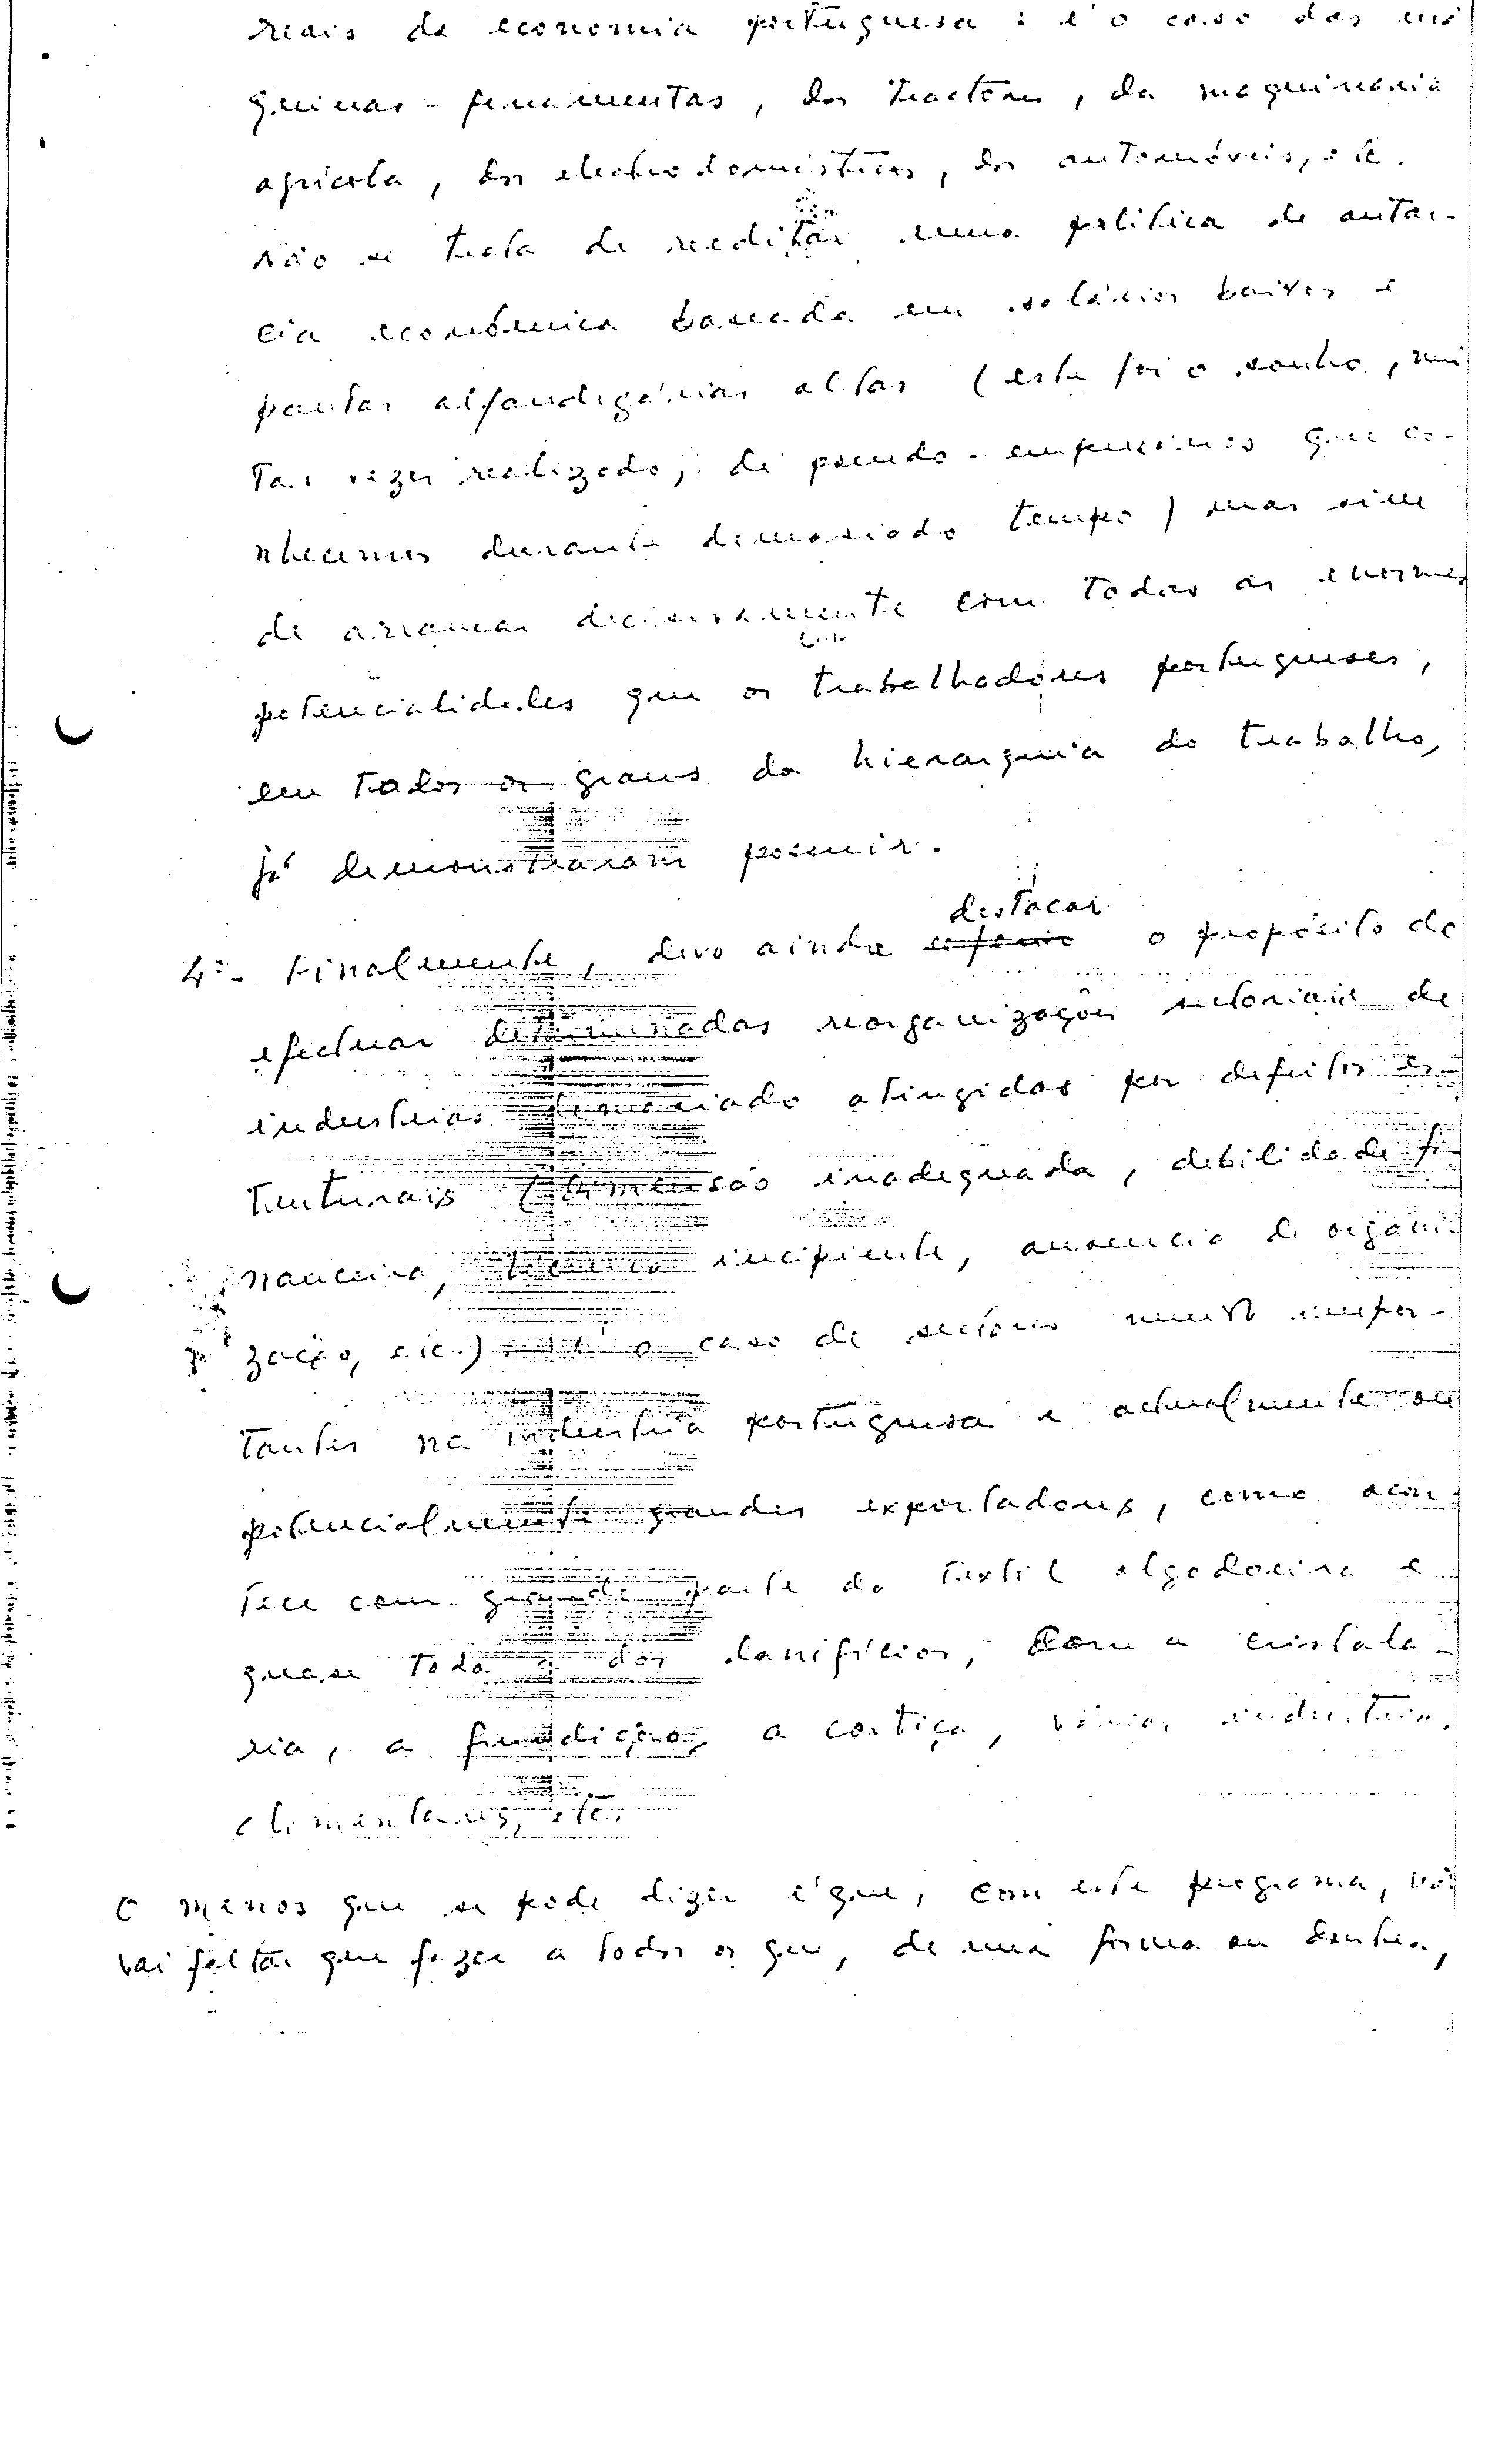 reais da economia portuguesa: é o caso das má
quinas-ferramentas, dos tractores, da maquinaria
agrícola, dos electrodomésticos, dos automóveis, etc.
Não se trata de reeditar uma política de autar-
cia económica baseada em salários baixos e
pautas alfandegárias altas (este foi o sonho, mui
tas vezes realizado, de pseudo-empresários que co-
nhecemos durante demasiado tempo) mas sim
de arrancar decisivamente com todas as enormes
potencialidades que os trabalhadores portugueses,
em todos os graus da hierarquia do trabalho,
já demonstraram possuir.
4º- Finalmente, devo ainda destacar o propósito de
efectuar determinadas reorganizações sectoriais de
indústrias demasiado atingidas por defeitos es
truturais (dimensão inadequada, debilidade fi
nanceira, incipiente, ausência de organi
zação, etc.) É o caso de sectores muito impor-
tantes na indústria portuguesa e actualmente ou
potencialmente grandes exportadores, como acon
tece com grande parte da têxtil algodoeira e
quase toda a dos lanifícios, com a cristala-
ria, a fundição, a cortiça, várias indústrias
alimentares, etc.
O menos que se pode dizer é que, com este programa, não
vai faltar que fazer a todos os que, de uma forma ou doutra,